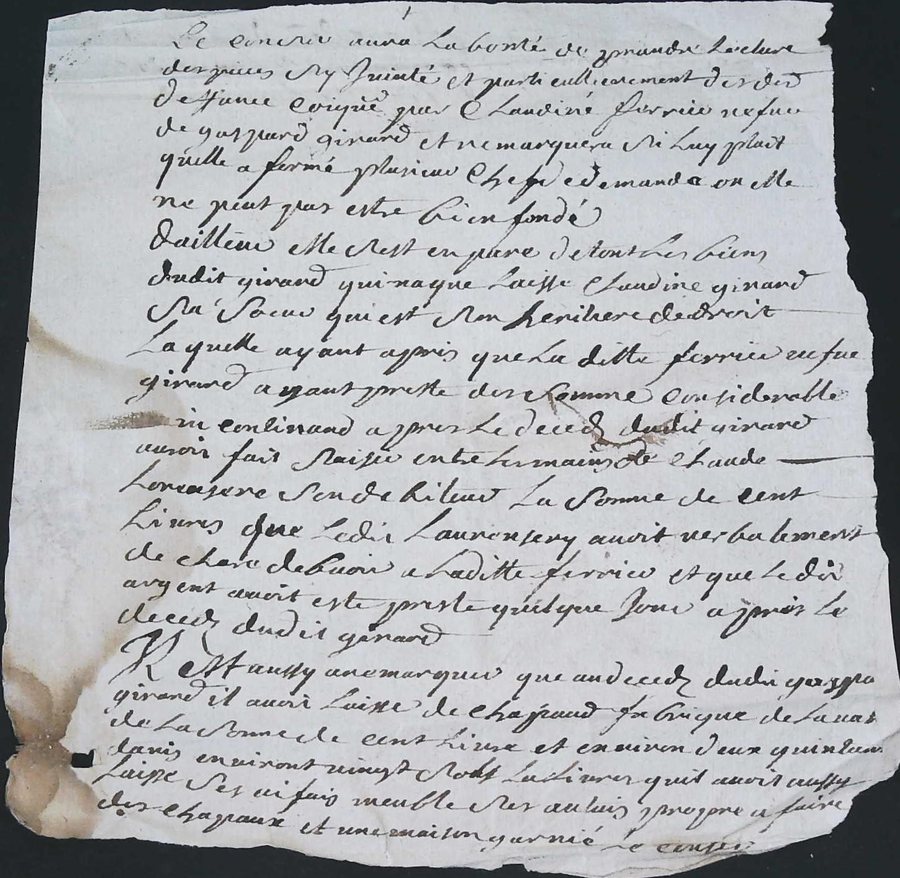 Le conseil aura la bonté de prandre lecture
des pieces sy Jointe et particullierement des
deffance par Claudine ferrier vefue
de gaspard girard et remarquera si luy plait
quelle a formé plusieur chef de demande ou elle
ne peut pas estre bien fondé
dailleur elle sest enparé de tout les biens
dudit girard qui na que laissé Claudine girard
sa soeur qui est son heritiere de droit
Laquelle ayant apris que la ditte ferrier vefue
girard ayant presté des somme considerable
in continand apres le deced dudit girard
auroit fait saisir entre les mains de Claude
son debiteur la somme de cent
Livres que ledit auoit verballement
de clare debuoir a laditte ferrier et que le dit
argent auoit esté presté quelque Jour apres le
deced dudit girard
Il est aussy a remarquer que au deced dudit
girard il auoit laissé de chapaud fabrique
de la somme de cent livre et environ deux
environt vingt sols la livre quil auoit aussy
laisse ses meuble ses outils propre a faire
des chapaux et une maison garnié le